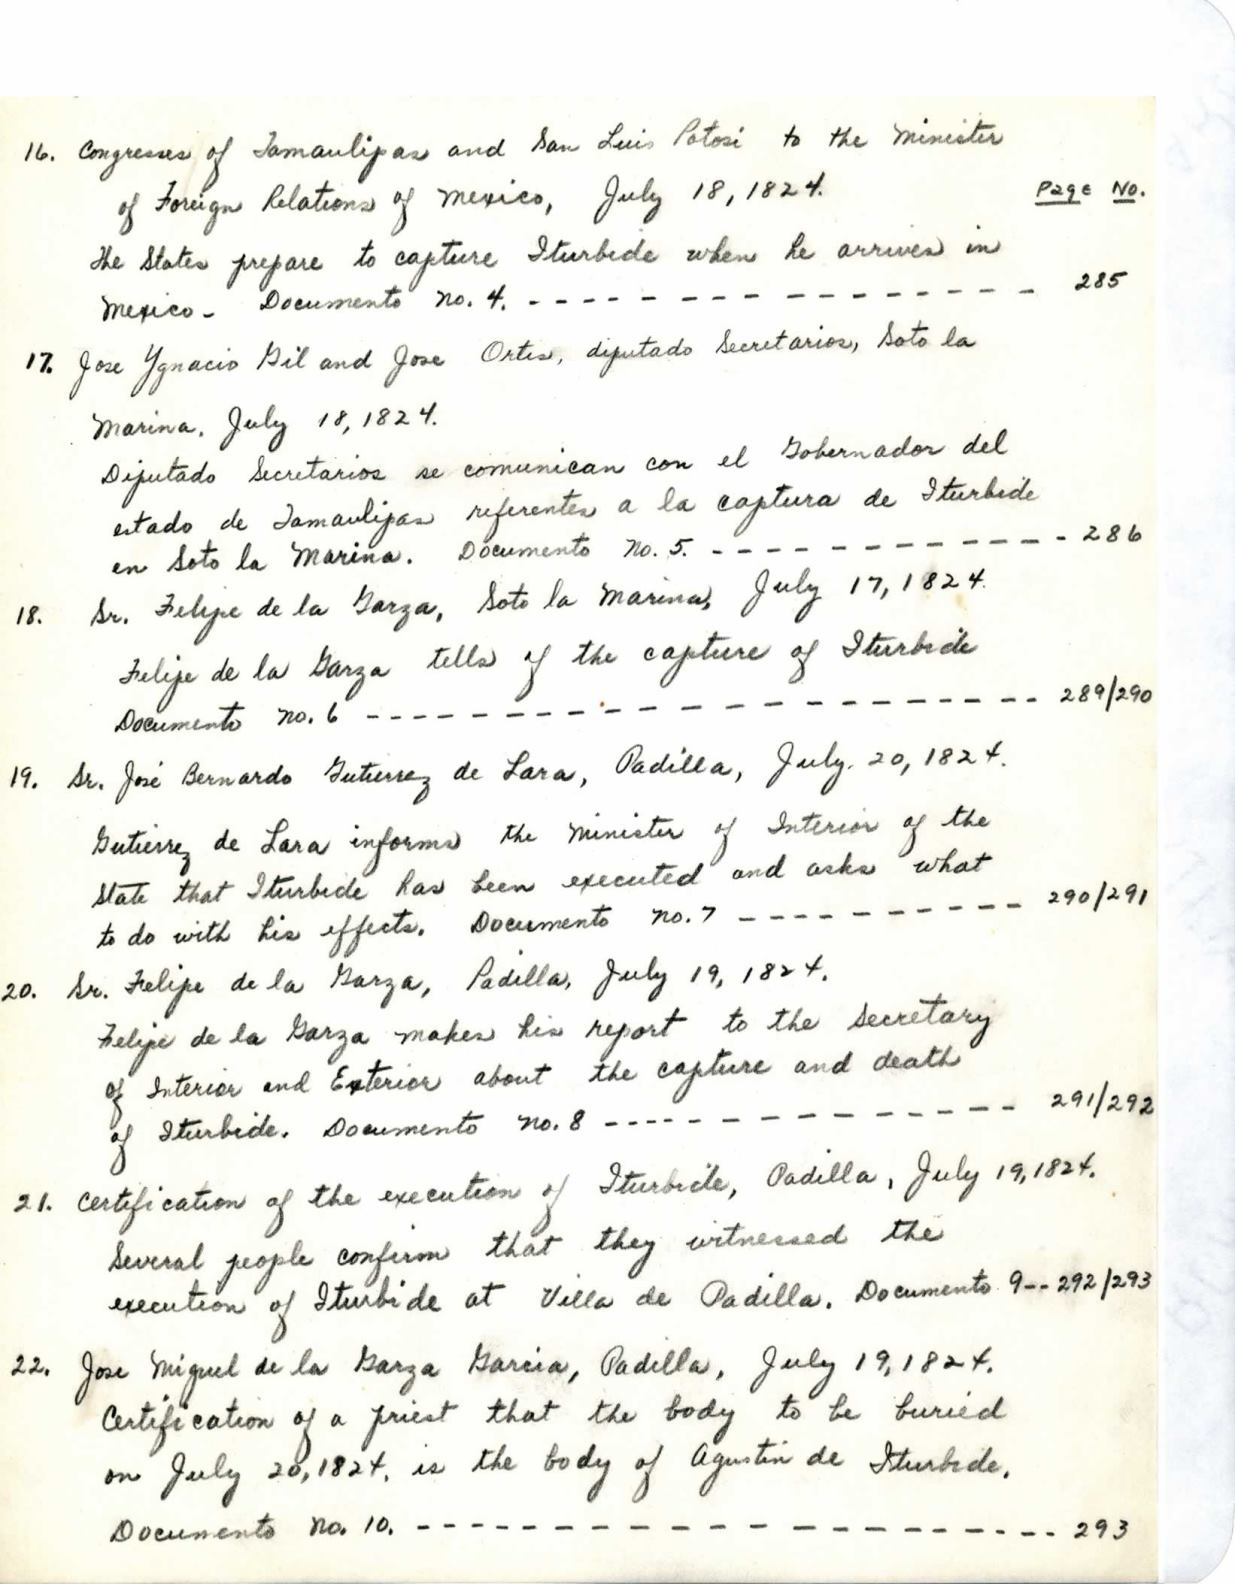 16. Congresses of Tamaulipas and San Luis Potosi to the Minister
of Foreign Relations of Mexico, July 18, 1824.
Page No.
The States prepare to capture Iturbide when he arrives in
Mexico - Documento No. 4. - - - - - - - - - - - - - - - - 285
17. Jose Ygnacio Gil and Jose Ortis, diputado Secretarios, Soto la
Marina. July 18, 1824.
Diputado Secretarios se comunican con el Gobernador del
estado de Tamaulipas referentes a la captura de Iturbide
en Soto la Marina. Documento No. 5. - - - - - - - - - - - - - - 286
18. Sr. Felipe de la Garza, Soto la Marina, July 17, 1824.
Felipe de la Garza tells of the capture of Iturbide
Documento No. 6 - - - - - - - - - - - - - - - - - - - - - 289/290
19. Sr. José Bernardo Gutierrez de Lara, Padilla, July. 20, 1824.
Gutierrez de Lara informs the Minister of Interior of the
State that Iturbide has been executed and asks what
to do with his effects. Documento No. 7 - - - - - - - - - - - 290/291
20. Sr. Felipe de la Garza, Padilla, July 19, 1824.
Felipe de la Garza makes his report to the Secretary
of Interior and Exterior about the capture and death
of Iturbide. Documento No. 8 - - - - - - - - - - - - - - - 291/292
21. Certification of the execution of Iturbide, Padilla, July 19, 1824.
Several people confirm that they witnessed the
execution of Iturbide at Villa de Padilla. Documento 9 -- 292/293
22. Jose Miguel de la Garza Garcia, Padilla, July 19, 1824.
Certification of a priest that the body to be buried
on July 20, 1824. is the body of Agustin de Iturbide.
Documento No. 10. - - - - - - - - - - - - - - - - - - - - - - - 293